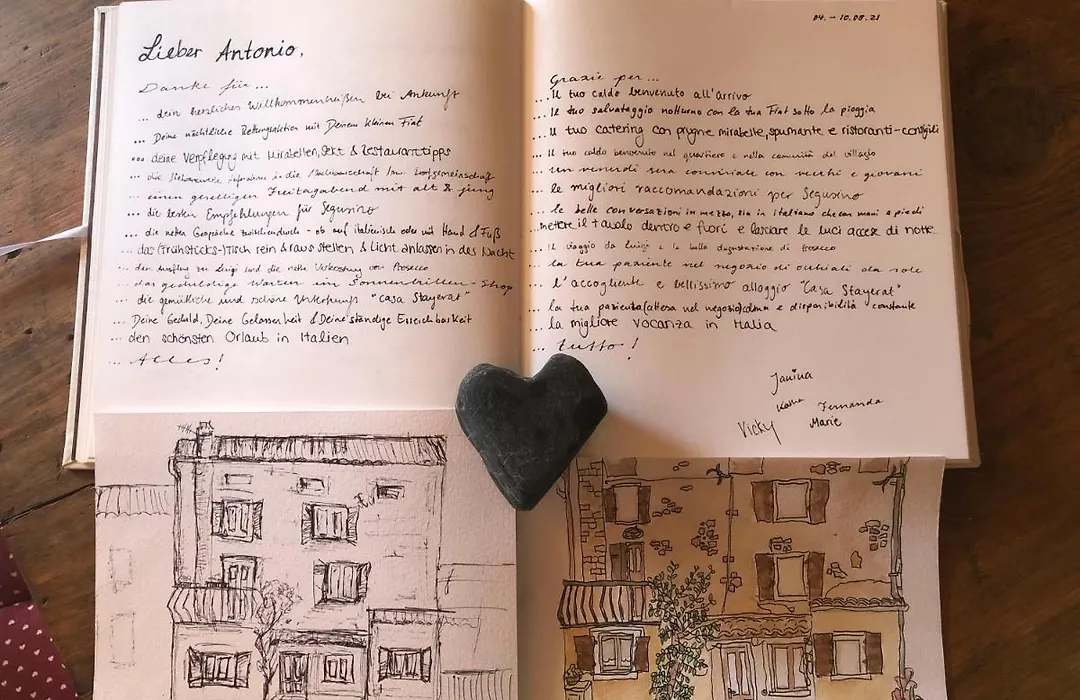 Lieber Antonio,
Danke für...
... dein herzliches Willkommenheißen bei Ankunft
... Deine nächtliche Rettungsaktion mit Deinem kleinen Fiat
... deine Verpflegung mit Mirabellen, Sekt & Restauranttipps
... die in die Nachbarschaft bzw. Dorfgemeinschaft
... einen geselligen Freitagabend mit alt & jung
... die besten Empfehlungen für Segusino
... die netten Gespräche zwischendurch - ob auf italienisch oder mit Hand & Fuß
... das Frühstücks-Tisch rein & raus stellen & Licht anlassen in des Nacht
... den Ausflug zu Luigi und die nette Verkostung von Prosecco
... das geduldige Warten im Sonnenbrillen-Shop
... die gemütliche und schöne Unterkunft "Casa Stayerat"
... Deine Geduld, Deine Gelassenheit & Deine ständige Erreichbarkeit
... den schönsten Urlaub in Italien
... Alles!
04. - 10.08.21
Grazie per...
... Il tuo caldo benvenuto all'arrivo
... Il tuo salvataggio notturno con la tua Fiat sotto la pioggia
... Il tuo catering con prugne mirabelle, spumante e ristoranti-consigli
... Il tuo caldo benvenuto nel quartiere e nella comunità del villaggio
... un venerdì sera conviviale con vecchi e giovani
... le migliori raccomandazioni per Segusino
... le belle conversazioni in mezzo, sia in italiano che con mani e piedi
... mettere il tavolo dentro e fuori e lasciare le luci accese di notte
... Il viaggio da Luigi e la bella degustazione di Prosecco
... la tua paziente nel negozio di occhiali da sole
... l'accogliente e bellissimo alloggio "Casa Stayerat"
... la tua pazienta(attesa nel negozio)calma e disponibilità constante
... la migliore vacanza in Italia
... tutto!
Janina
Fernanda
Vicky
Marie